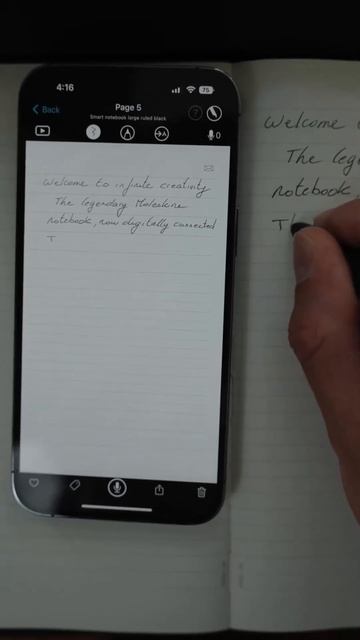 4:16
75
Back
Page 5
Smart notebook large ruled black
?
A
A
0
Welcome to infinite creativity
The legendary Moleskine
notebook, now digitally connected
T
Welcome
The leg
notebook
Th